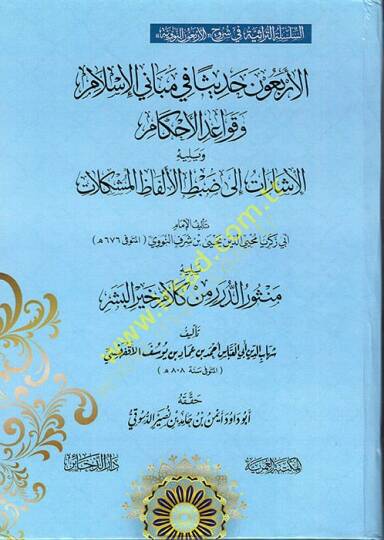 السلسلة التراثية في شروح «الأربعون النووية»
الأربعون حديثًا في مباني الإسلام
وقواعد الأحكام
ويليه
الإشارات إلى ضبط الألفاظ المشكلات
تأليف الإمام
أبي زكريا محيي الدين يحيى بن شرف النووي (المتوفى ٦٧٦ هـ)
يليه
منثور الدرر من كلام خير البشر
تأليف
شهاب الدين أبي العباس أحمد بن عماد بن يوسف الأقفهسي
(المتوفى سنة ٨٠٨ هـ)
حققه
أبو داود أيمن بن حامد بن نصير الدسوقي
المكتبة العمرية
دار الذخائر